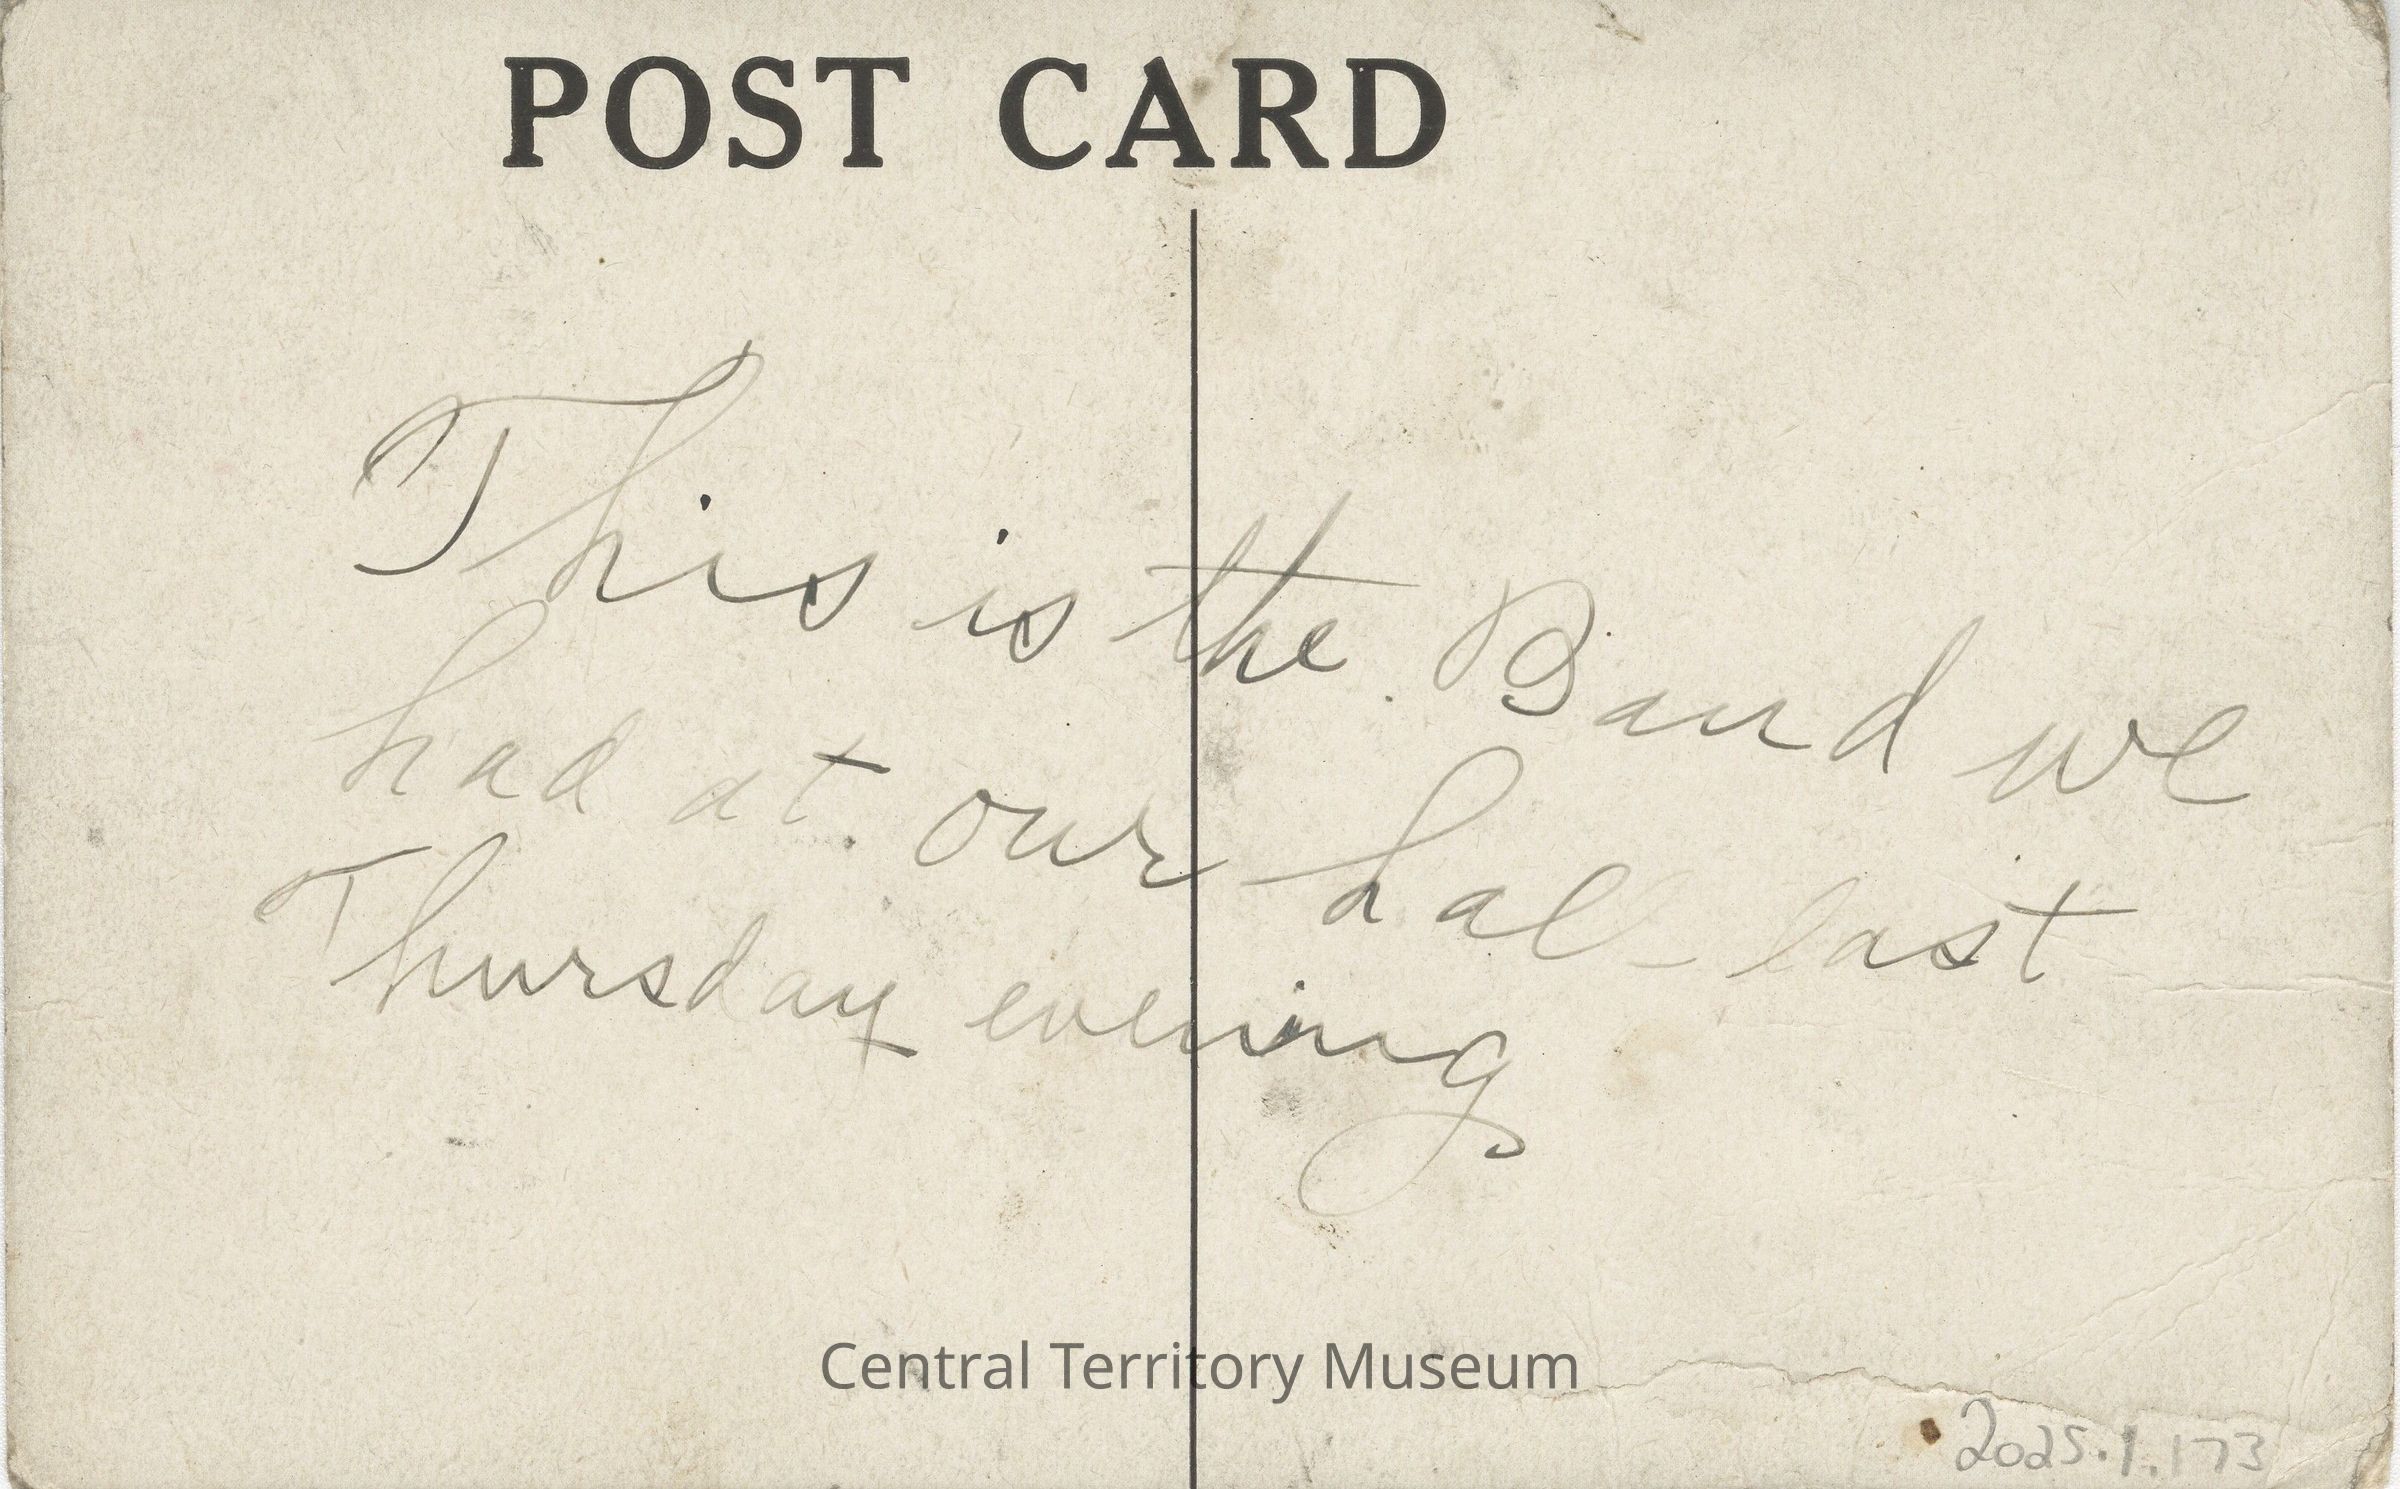 POST CARD
This is the Band we
had at our hall last
Thursday evening
Central Territory Museum
2025.1.173